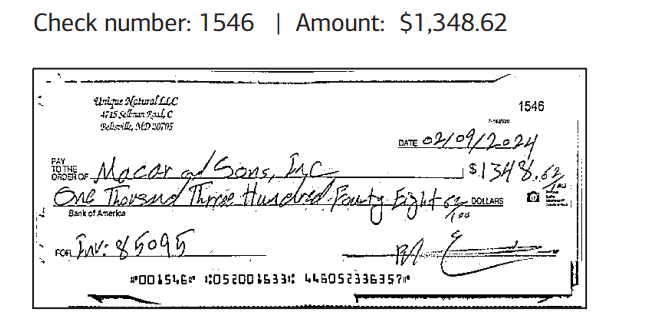 Check number: 1546 | Amount: $1,348.62
Unique Natural LLC
4715 Sellman Road, C
Beltsville, MD 20705
1546
DATE 02/09/2024
PAY
TO THE
ORDER OF Macar and Sons, Inc $1348.62/100
One Thousand Three Hundred Fourty Eight 62/100 DOLLARS
Bank of America
FOR Inv: 85095
⑈001546⑈ ⑆052001633⑆ 446052336357⑈